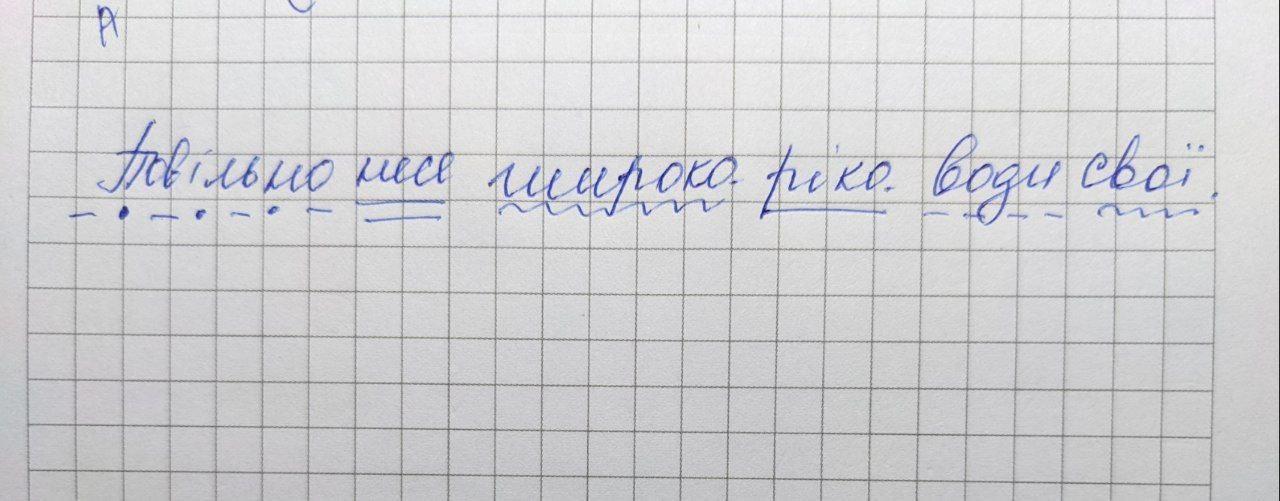 Повільно несе широка ріка води свої.